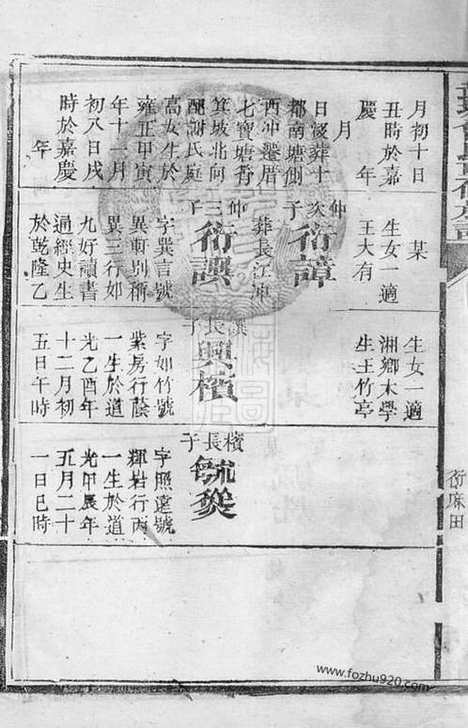 月初十日
丑時於嘉
慶　年
月
日後葬十
都南塘側
西冲鑾厝
七寶塘脊
箕坡北向
配謝氏庭
高女生於
雍正甲寅
年十一月
初八日戌
時於嘉慶
年
某
生女一適
王大有
仲次子
衍諱
葬長江冲
仲三子
衍譔
字巽言號
巽軒別稱
異三行邜
九好讀書
通經史生
於乾隆乙
生女一適
湘鄉木學
生王竹亭
譔長子
興檳
字如竹號
紫房行蔭
一生於道
光乙酉年
十二月初
五日午時
檳長子
毓燊
字照遠號
輝岩行丙
一生於道
光甲辰年
五月二十
一日巳時
衍麻田
www.fozhu920.com